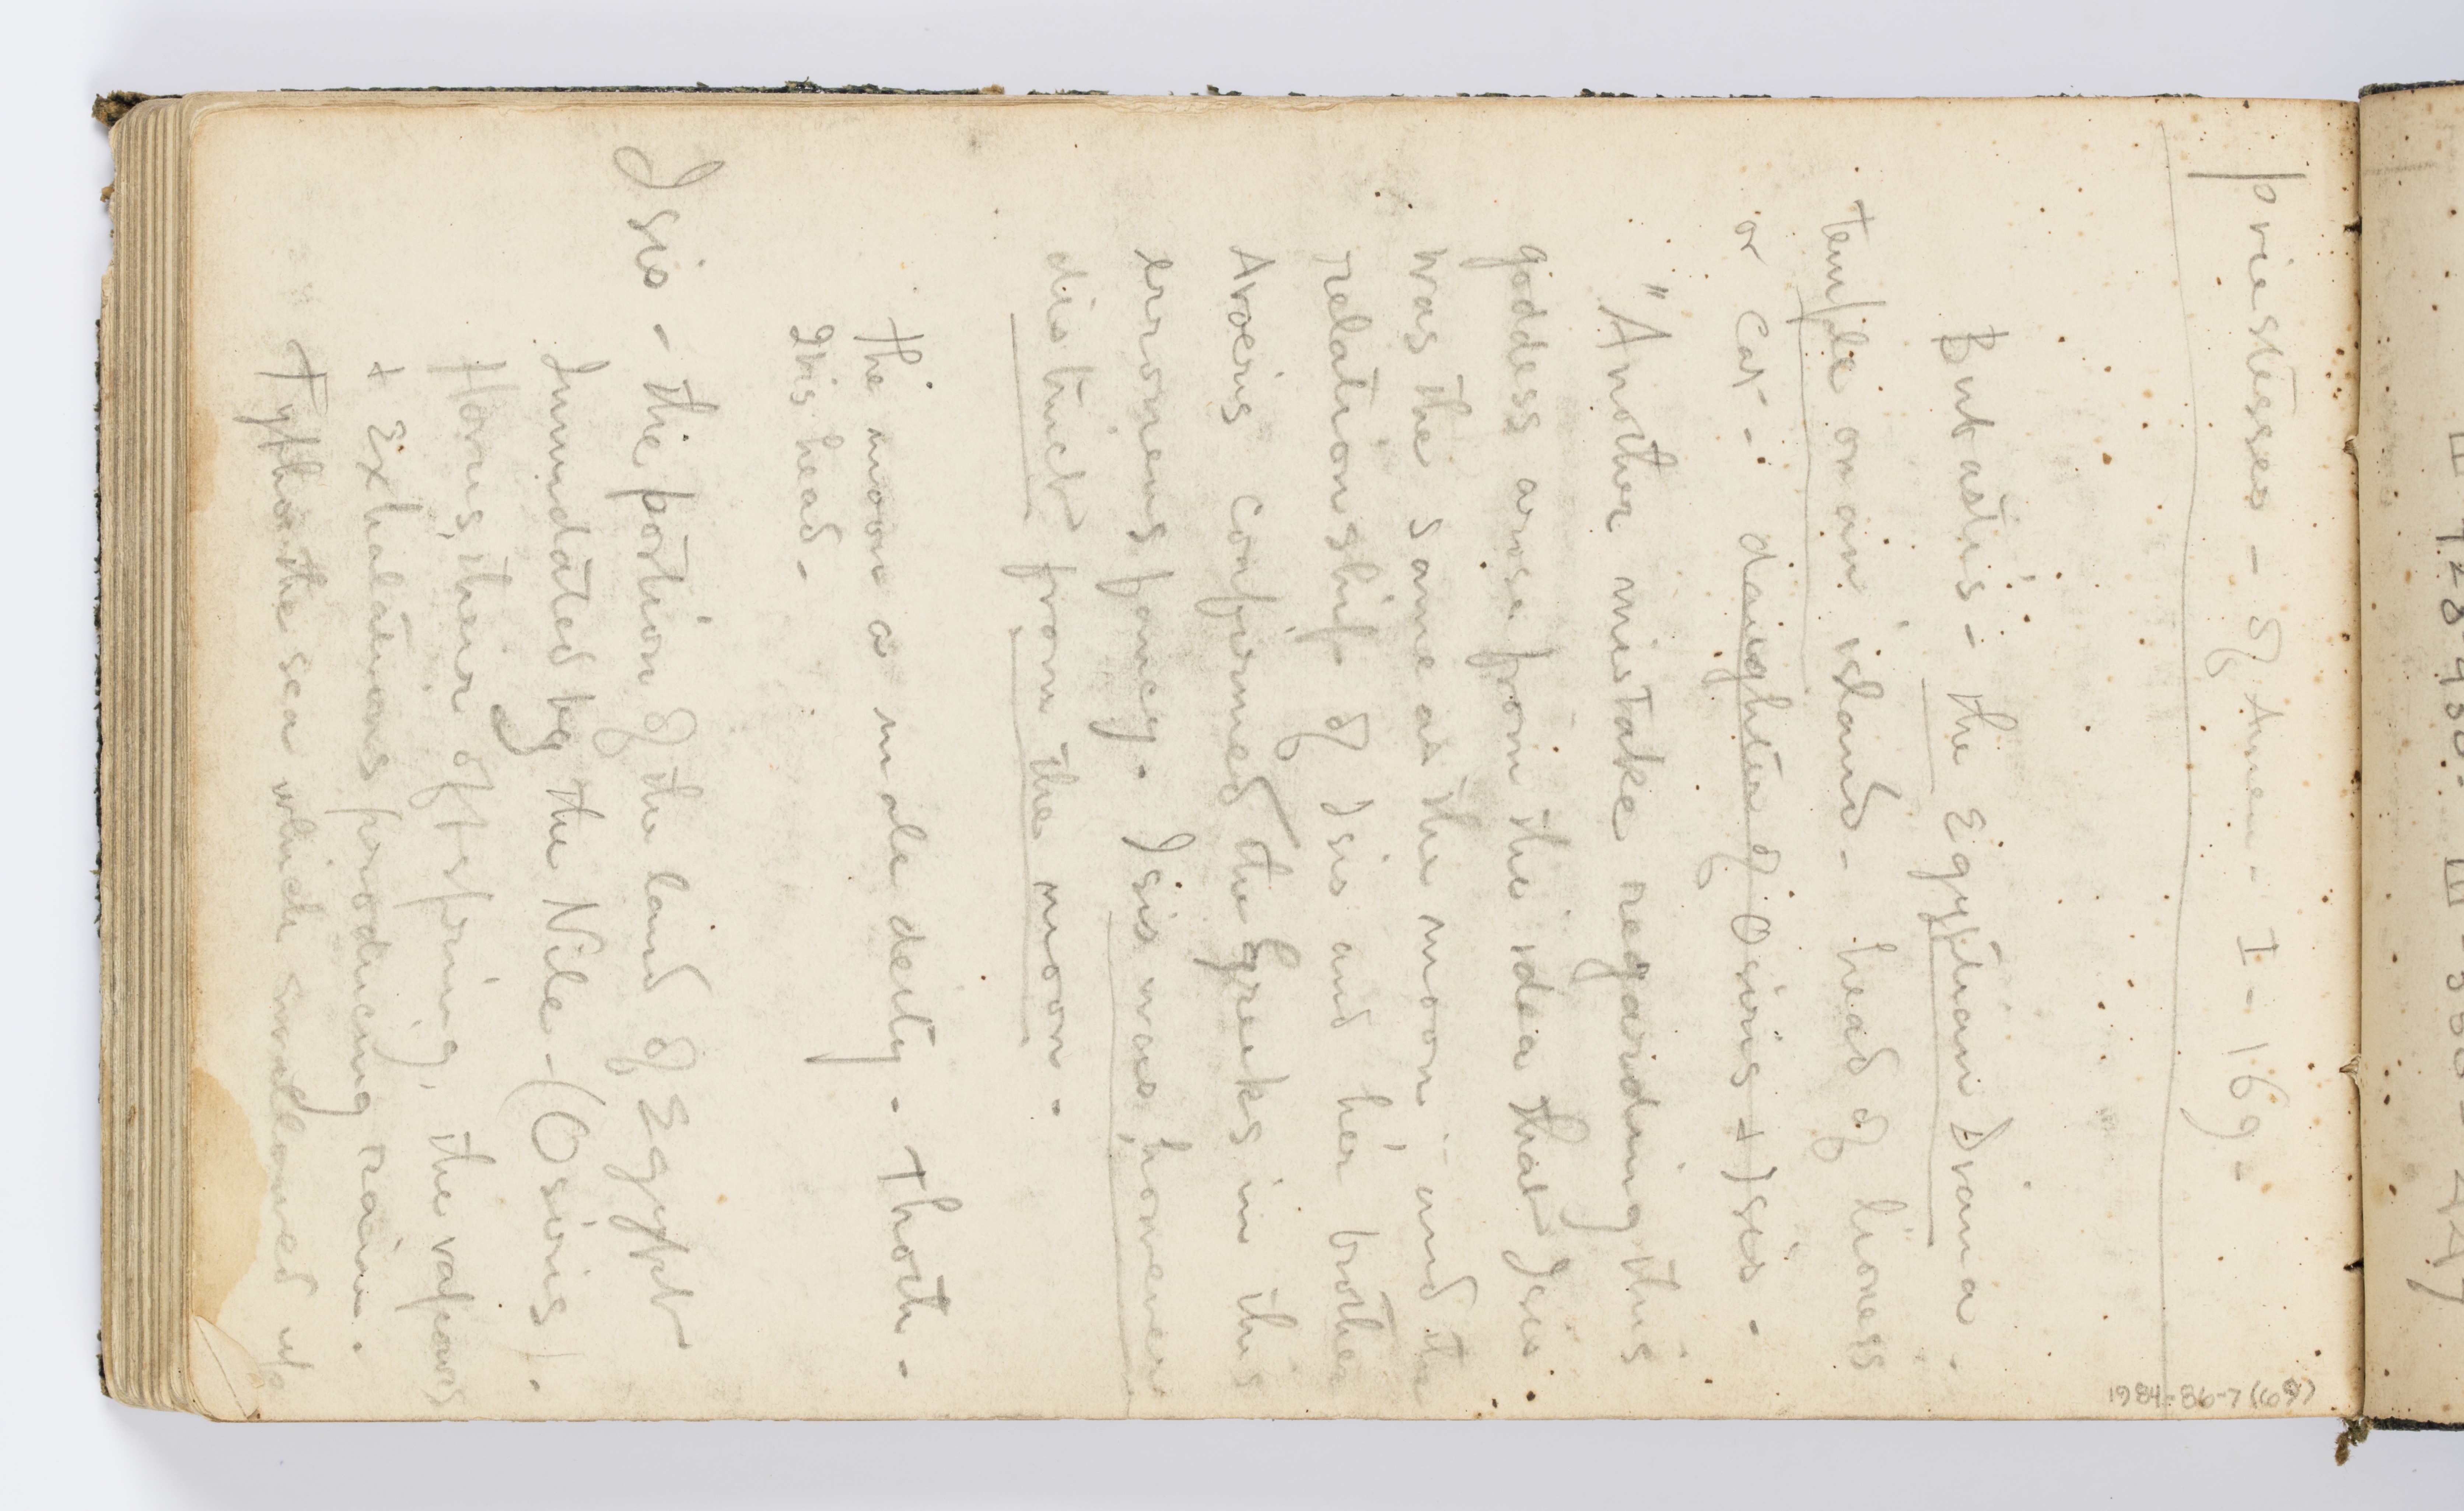 priestesses - of Amen - I - 169 -
Bubastis - the Egyptian Diana.
temple on an island - head of lioness
or cat - daughter of Osiris + Isis.
"Another mistake regarding this
goddess arose from the idea that Isis
was the same as the moon and the
relationship of Isis and her brother
Aroeris confirmed the Greeks in this
erroneous fancy. Isis was, however
distinct from the moon.
the moon a male deity - Thoth.
Ibis head -
Isis - the portion of the land of Egypt
Inundated by the Nile - (Osiris).
Horus, their offspring, the vapours
+ Exhalations producing rain.
Typhon the sea which swallowed up
1984-86-7 (69)